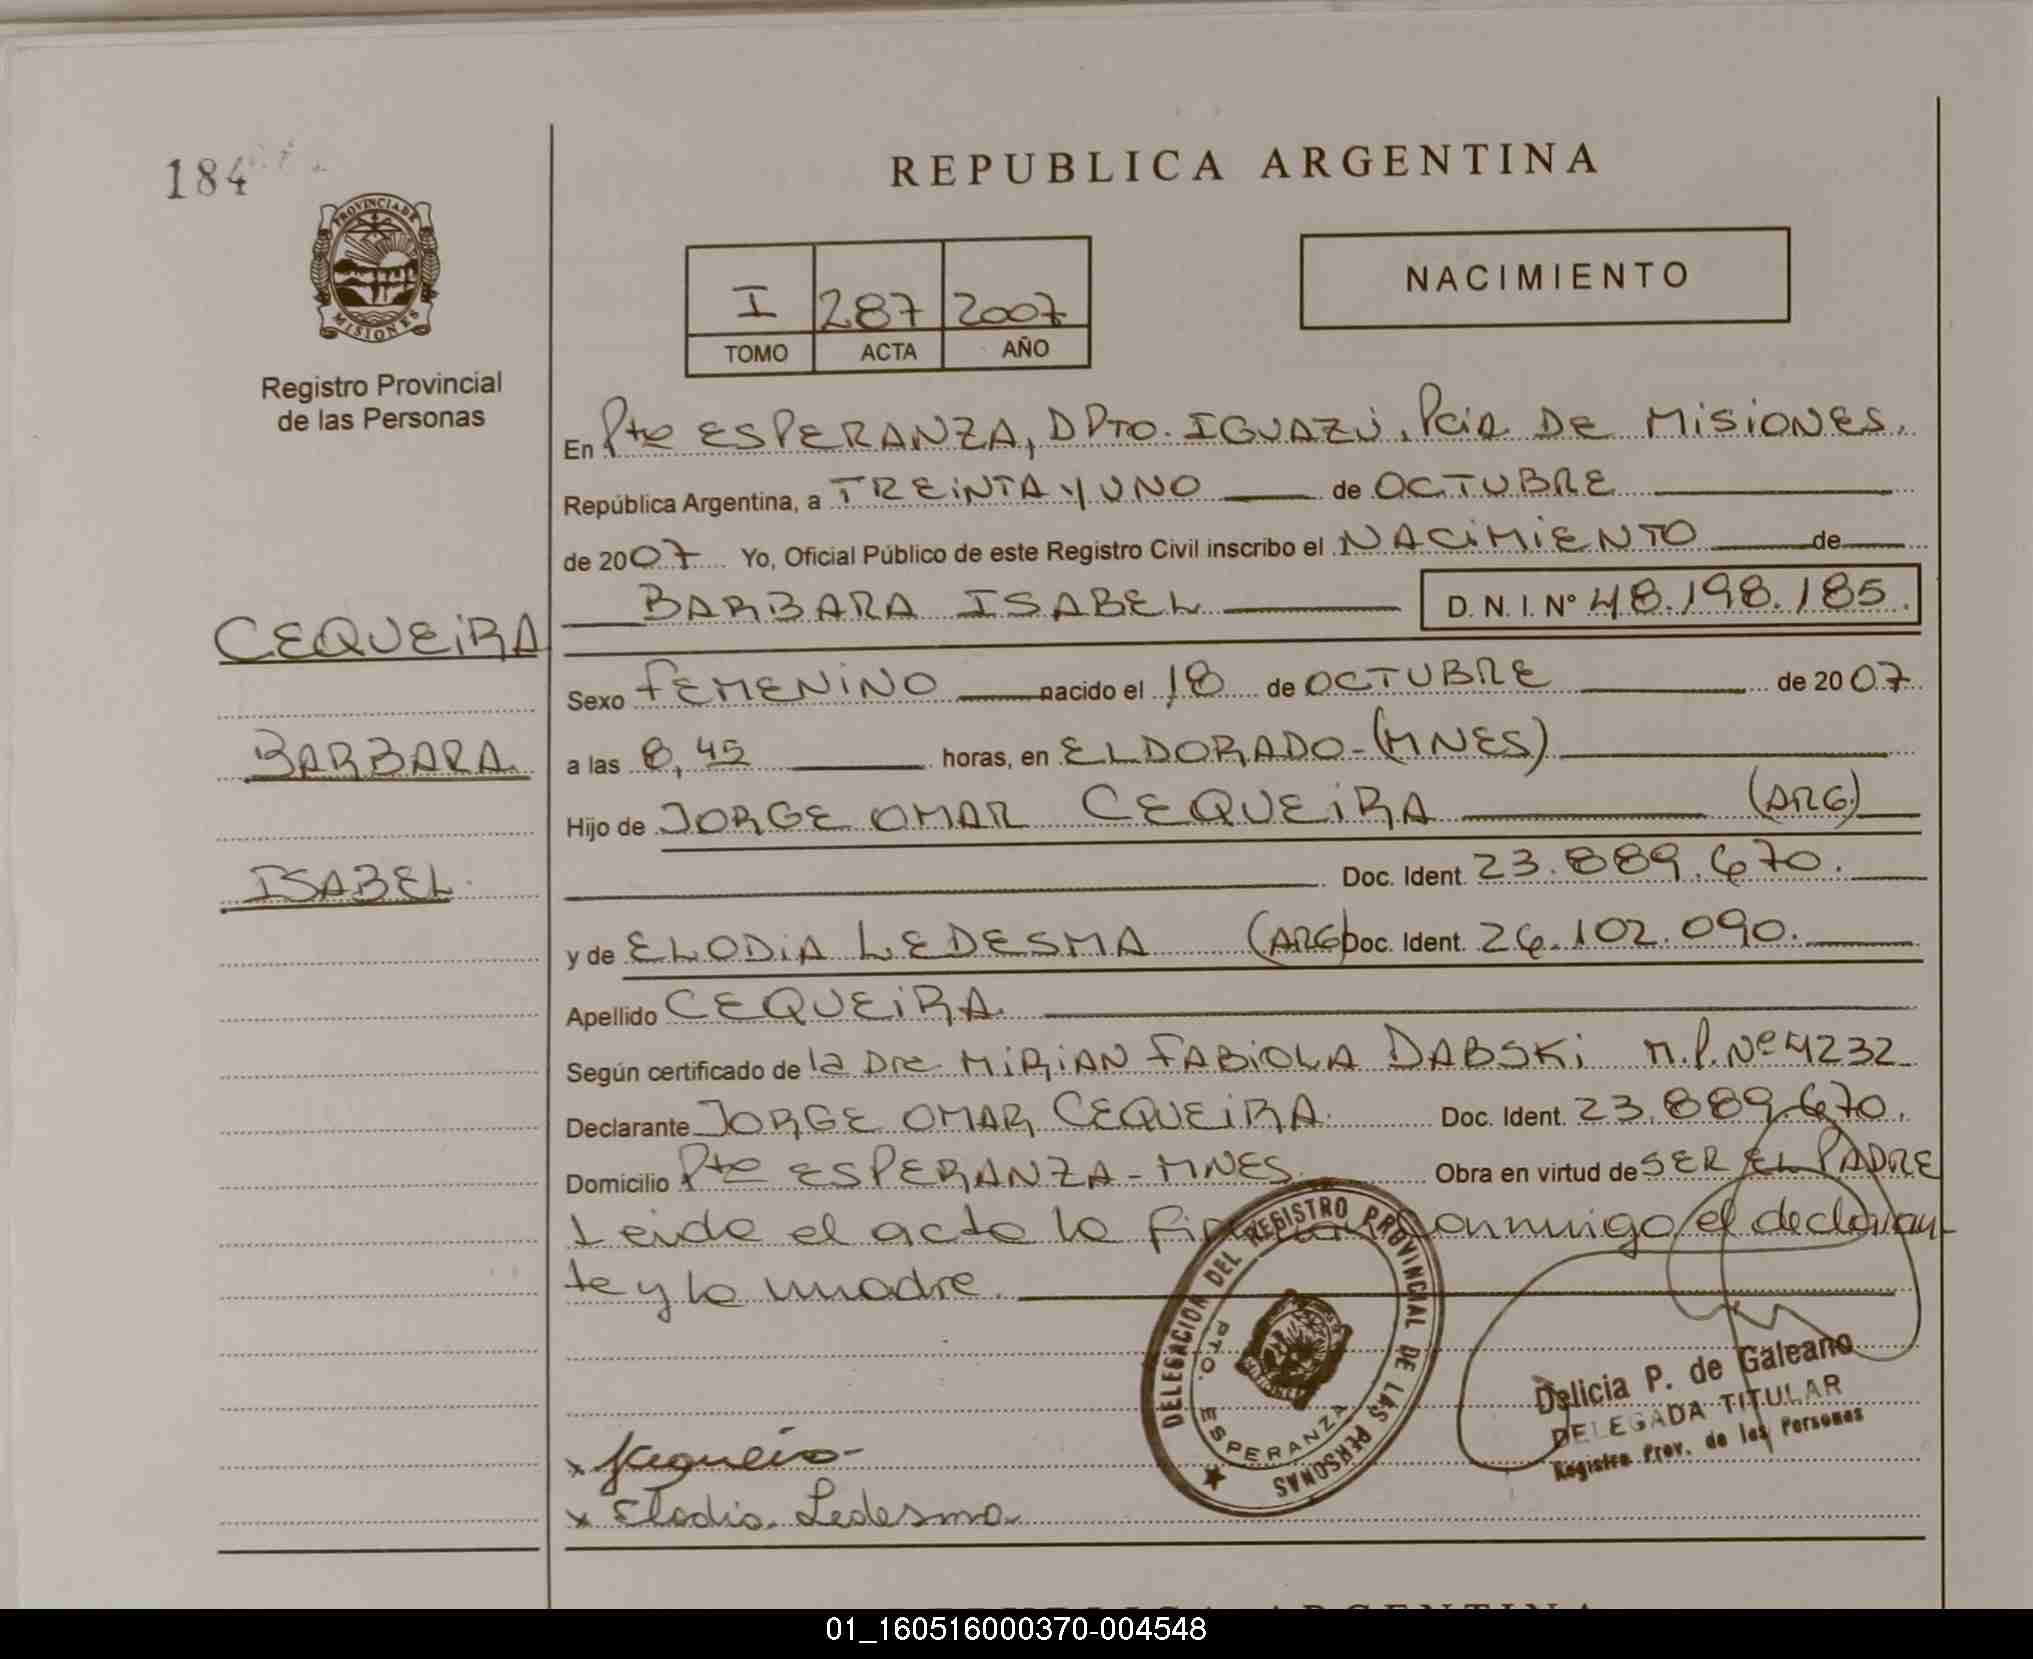 184
PROVINCIA DE
MISIONES
Registro Provincial
de las Personas
REPUBLICA ARGENTINA
I 287 2007
TOMO ACTA AÑO
NACIMIENTO
En Pto ESPERANZA, DPTO. IGUAZÚ, Pcia DE MISIONES.
República Argentina, a TREINTA Y UNO de OCTUBRE
de 2007 Yo, Oficial Público de este Registro Civil inscribo el NACIMIENTO de
BARBARA ISABEL D. N. I. N° 48.198.185.
CEQUEIRA
BARBARA
ISABEL.
Sexo FEMENINO nacido el 18 de OCTUBRE de 2007.
a las 8,45 horas, en ELDORADO-(MNES)
Hijo de JORGE OMAR CEQUEIRA (ARG.)
Doc. Ident. 23.889.670.
y de ELODIA LEDESMA (ARG) Doc. Ident. 26.102.090.
Apellido CEQUEIRA
Según certificado de la Dra MIRIAN FABIOLA DABSKI M.P.Nº 4232
Declarante JORGE OMAR CEQUEIRA Doc. Ident. 23.889.670.
Domicilio Pto ESPERANZA-MNES. Obra en virtud de SER EL PADRE
Leida el acta la firman conmigo el declaran-
te y la madre.
DELEGACION DEL REGISTRO PROVINCIAL DE LAS PERSONAS
PTO. ESPERANZA
Delicia P. de Galeano
DELEGADA TITULAR
Registro Prov. de las Personas
x
x Elodia Ledesma
REPUBLICA ARGENTINA
01_160516000370-004548